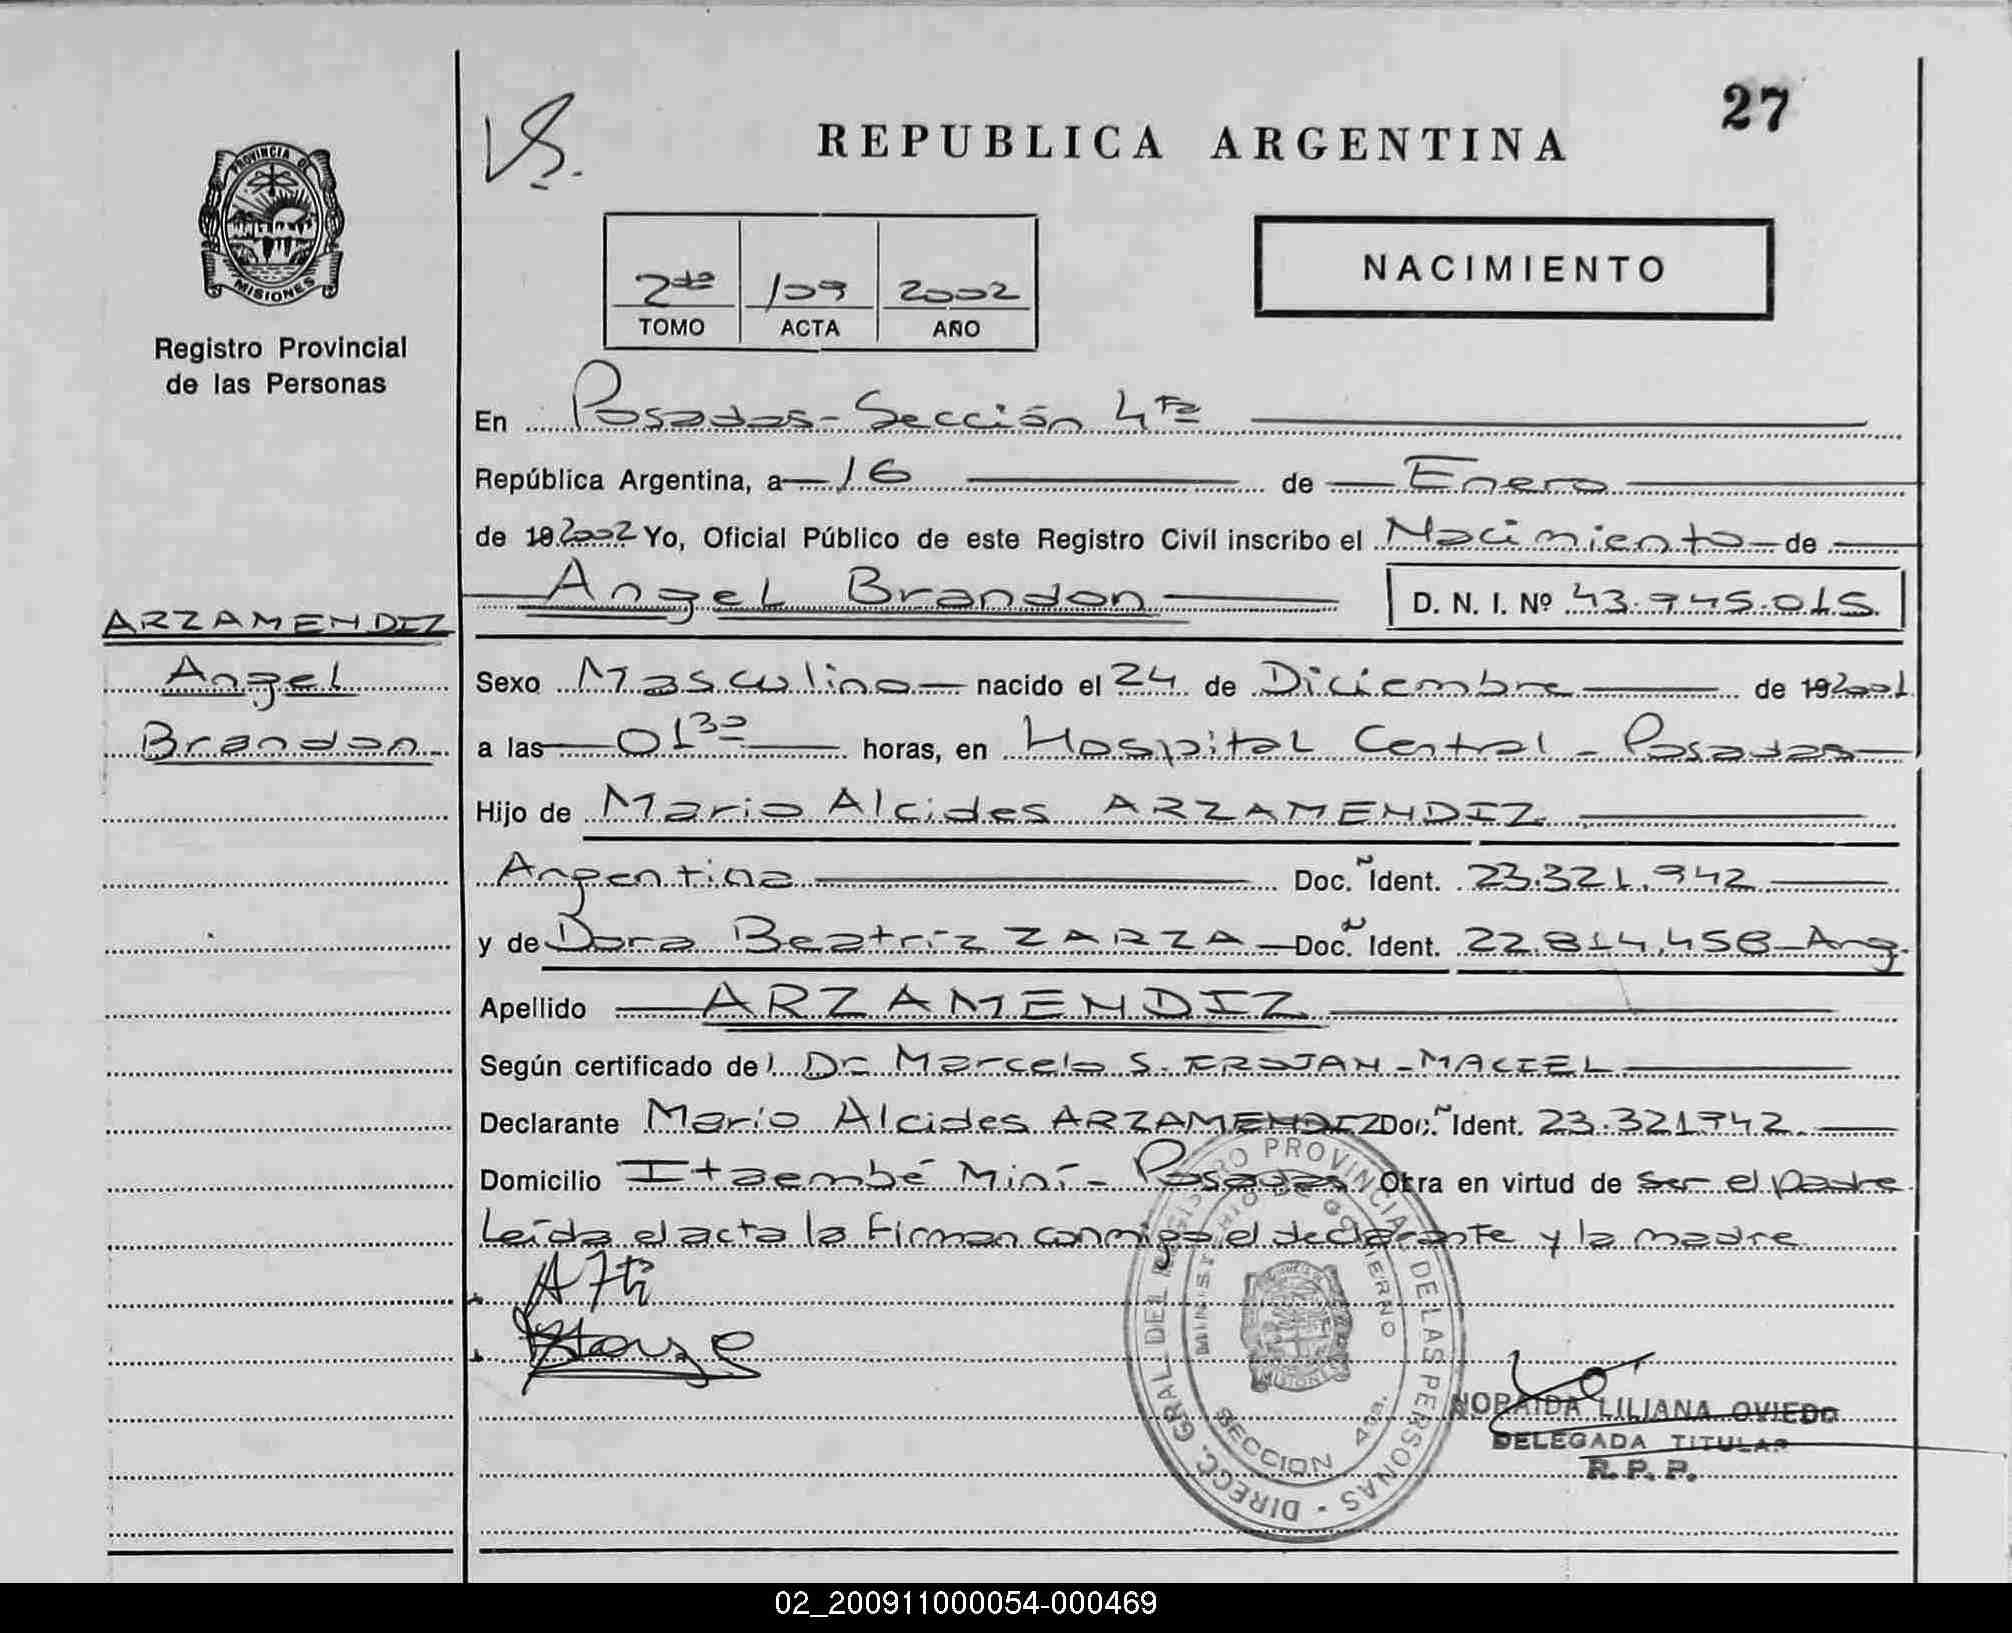 27
REPUBLICA ARGENTINA
PROVINCIA DE MISIONES
Registro Provincial
de las Personas
NACIMIENTO
2do 109 2002
TOMO ACTA AÑO
En Posadas - Sección 4ta
República Argentina, a 16 de Enero
de 19 2002 Yo, Oficial Público de este Registro Civil inscribo el Nacimiento de
Angel Brandon D. N. I. Nº 43.945.015
ARZAMENDIZ
Angel
Brandon
Sexo Masculino nacido el 24 de Diciembre de 19 2001
a las 01 30 horas, en Hospital Central - Posadas
Hijo de Mario Alcides ARZAMENDIZ
Argentina Doc. Ident. 23.321.942
y de Dora Beatriz ZARZA Doc. Ident. 22.814.458 - Arg.
Apellido ARZAMENDIZ
Según certificado de Dr Marcelo S. - MACIEL
Declarante Mario Alcides ARZAMENDIZ Doc. Ident. 23.321.942
Domicilio Itaembé Miní - Posadas Obra en virtud de ser el padre
Leída el acta la firman conmigo el declarante y la madre
DIRECC. GRAL DEL REGISTRO PROVINCIAL DE LAS PERSONAS
MINISTERIO DE GOBIERNO
MISIONES
SECCION 4ta.
NORAIDA LILIANA OVIEDO
DELEGADA TITULAR
R. P. P.
02_200911000054-000469